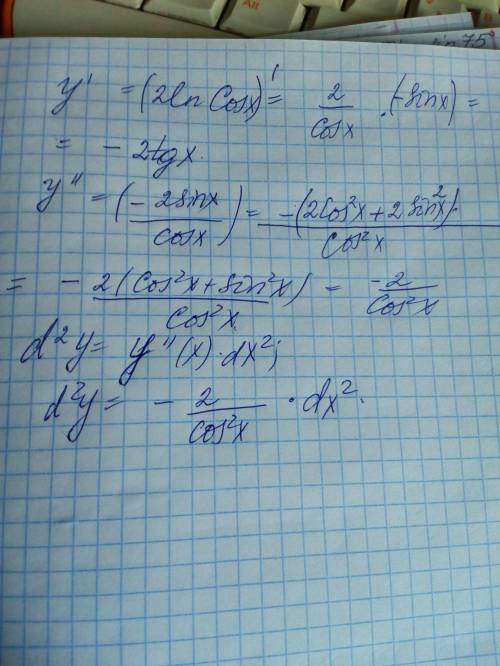 y' = (2ln Cosx)' = 2/Cosx · (-Sinx) =
= - 2tgx.
y'' = (- 2sinx/cosx) = -(2Cos²x + 2Sin²x)/Cos²x
= - 2(Cos²x + Sin²x)/Cos²x = -2/Cos²x
d²y = y''(x)·dx²;
d²y = - 2/Cos²x · dx².